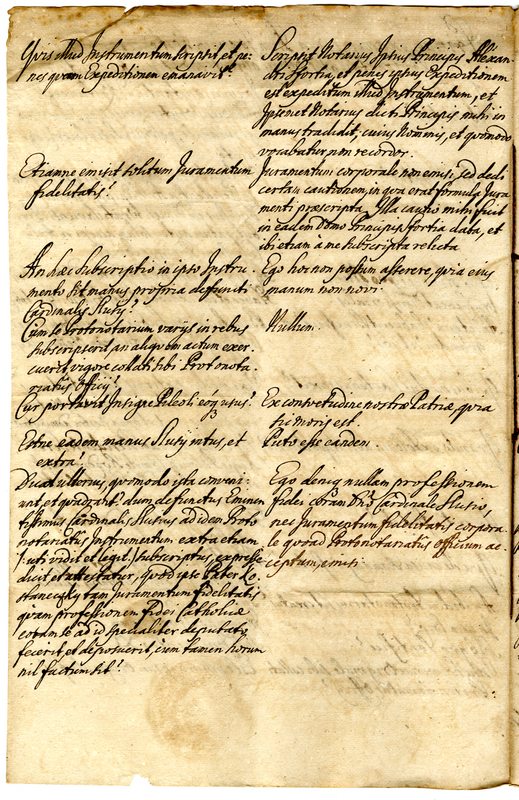 Quis illud Instrumentum scripsit, et pe-
nes quem Expeditionem emanavit?
Scripsit Notarius Ipsius Principis Alexan-
dri Sfortia, et penes ipsius Expeditionem
est expeditum illud Instrumentum, et
Ipsemet Notarius dicti Principis mihi in
manus tradidit, cuius Nominis, et quomodo
vocabatur, non recordor.
Etiamne emisit solitum Juramentum
fidelitatis?
Juramentum corporale non emisi, sed dedi
certam cautionem, in qua erat formula Jura-
menti præscripta. Illa cautio mihi fuit
in eadem Domo Principis Sfortia data, et
ibi etiam a me subscripta relicta
An hæc Subscriptio in ipso Instru-
mento sit manus propria defuncti
Cardinalis Slusy?
Ego hoc non possum asserere, quia eius
manum non novi.
Cum se Protonotarium varijs in rebus
subscripserit, an aliquem actum exer-
cuerit vigore collati sibi Protonota-
riatus Officij?
Nullum.
Cur portavit Insigne Pileoli eóq usus?
Ex consvetudine nostræ Patriæ, quia
sic moris est.
Estne eadem manus Slusy intus, et
extra?
Puto esse eandem.
Dicat ulterius, quomodo ista conveni-
unt, et quadrant? dum defunctus Eminen
tissimus Cardinalis Slusius ad idem Proto
notariatus Instrumentum extra etiam
/: uti vidit et legit :/ subscriptus, expresse
dicit et attestatur, quod ipse Pater
tam Juramentum fidelitatis
quam professionem fidei Catholicæ
coram se ad id specialiter deputato,
fecerit, et deposuerit, cum tamen horum
nil factum sit?
Ego deniq nullam professionem
fidei coram Dno Cardinale Slusio,
nec Juramentum fidelitatis corpora-
le quoad Protonotariatus officium ac-
ceptum, emisi